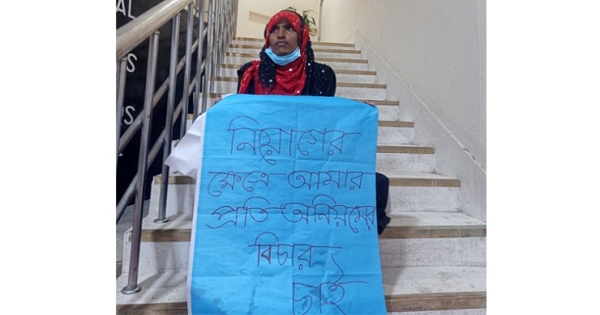 AL
নিয়োগের
ক্ষেত্রে আমার
প্রতি অনিয়মের
বিচার
চাই